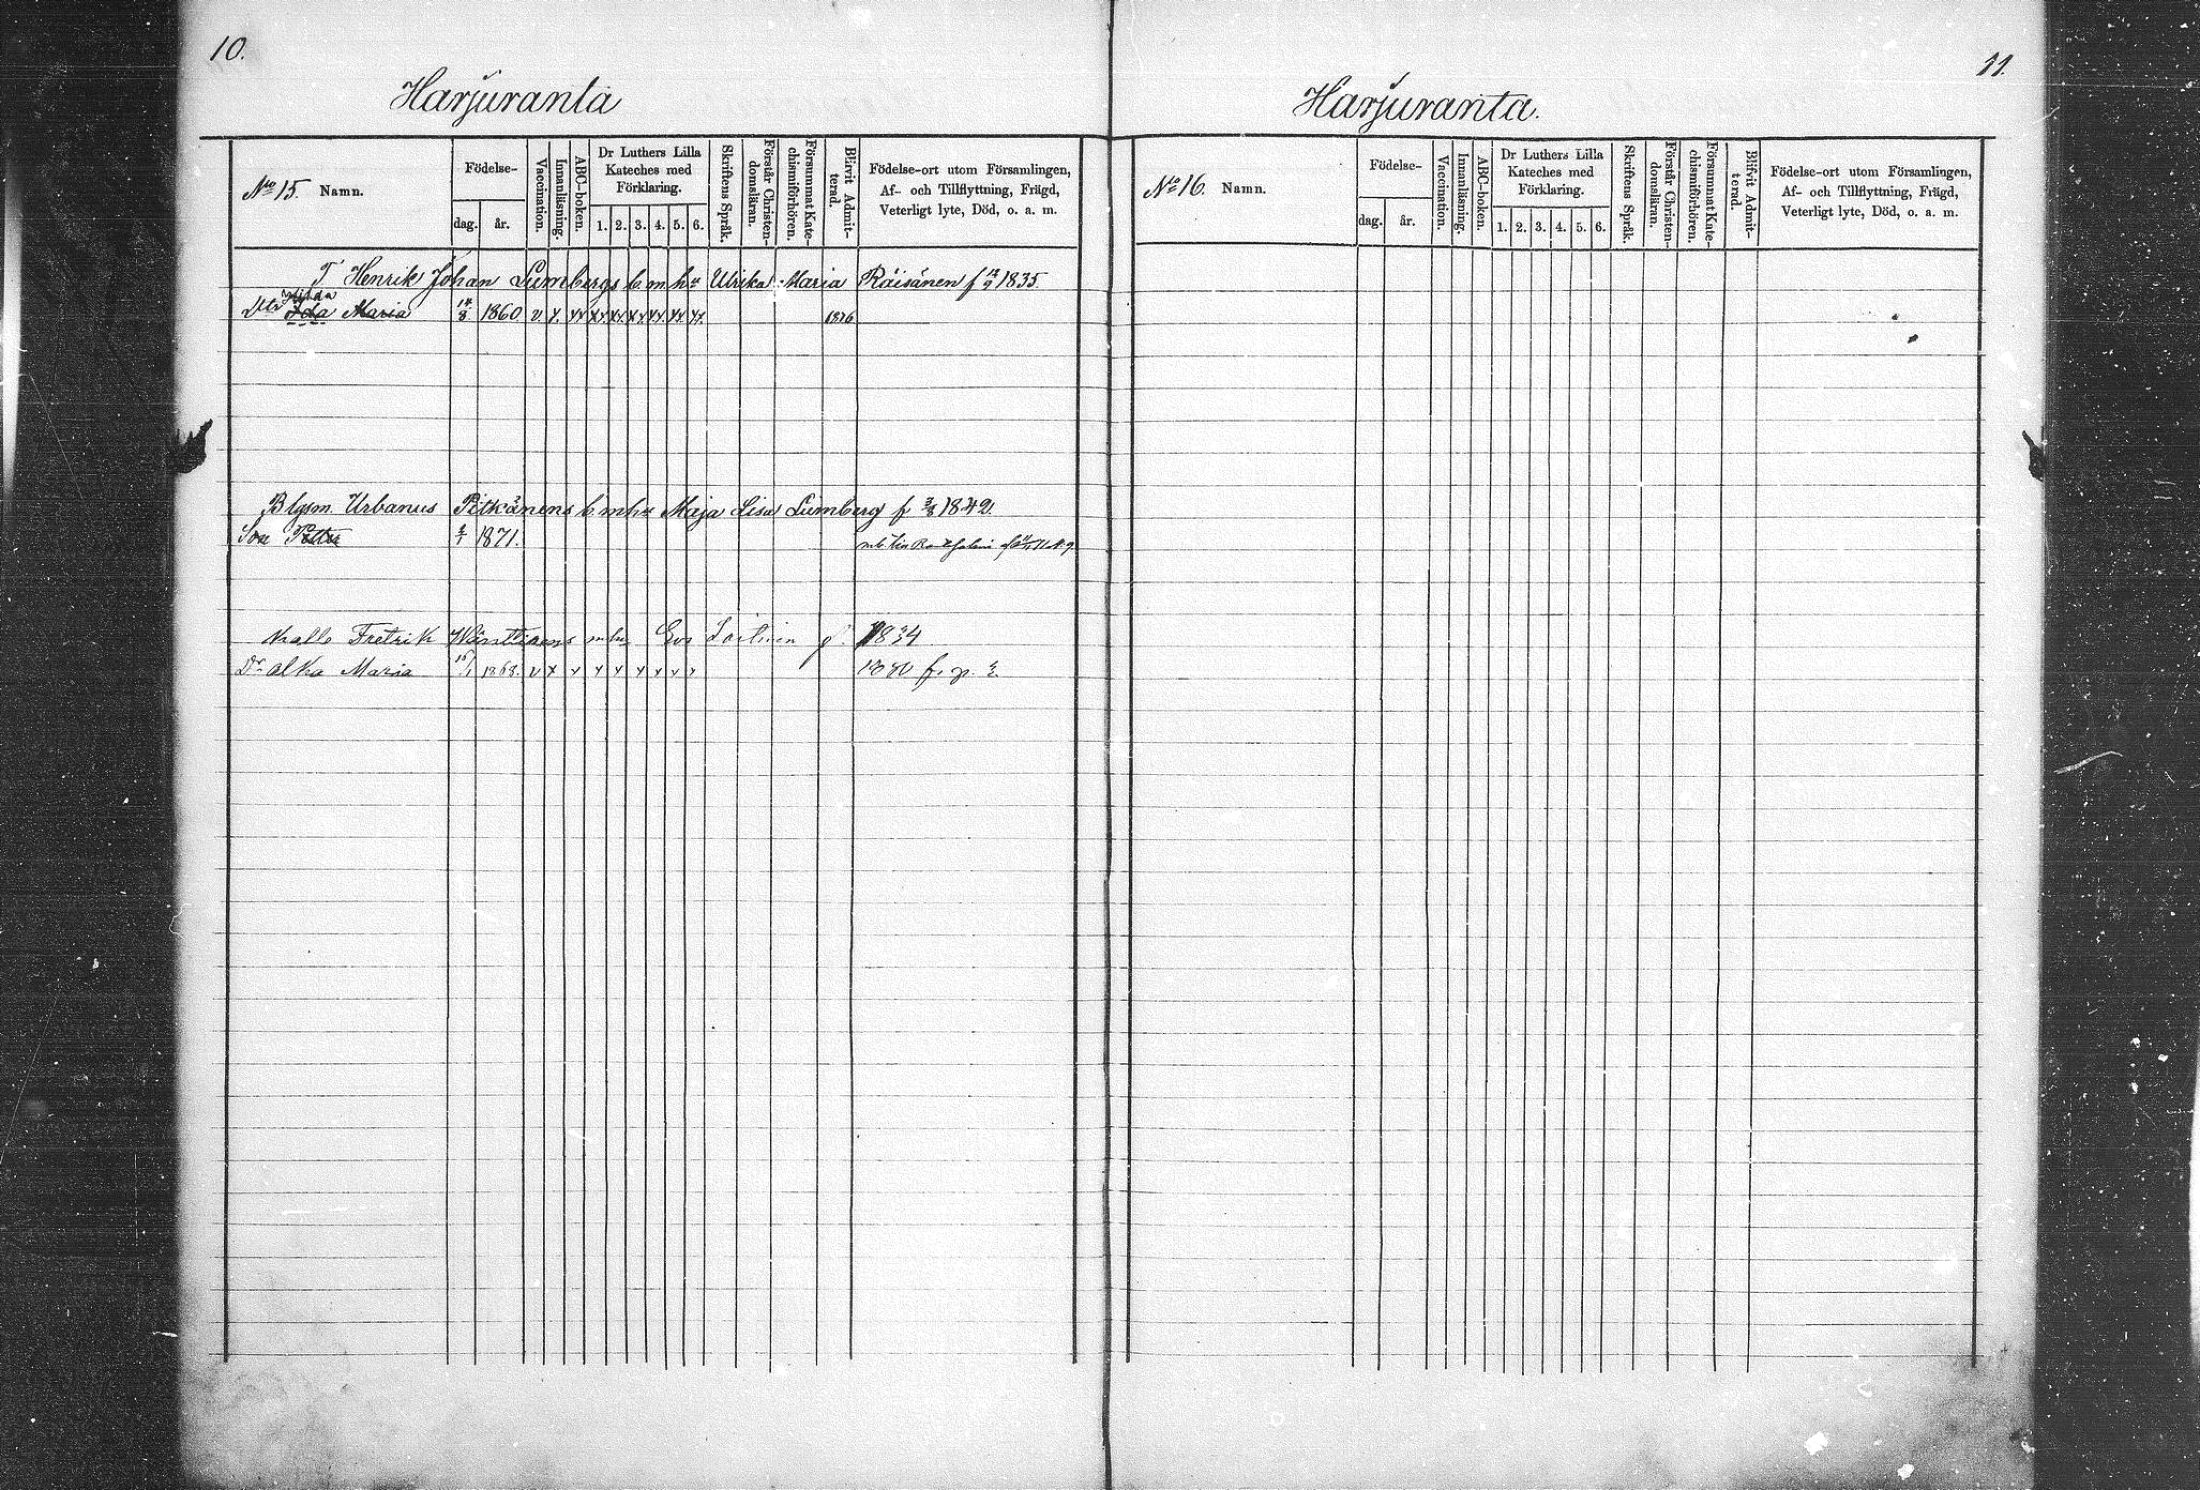 10.
Harjuranta
No 15. Namn.
Födelse-
dag.
år.
Vaccination.
Innanläsning.
ABC-boken.
Dr Luthers Lilla
Kateches med
Förklaring.
1. 2. 3. 4. 5. 6.
Skriftens Språk.
Förstår Christen-
domsläran.
Försummat Kate-
chismiförhören.
Blifvit Admit-
terad.
Födelse-ort utom Församlingen,
Af- och Tillflyttning, Frägd,
Veterligt lyte, Död, o. a. m.
T Henrik Johan Lumbergs b. m. hu Ulrika Maria Räisänen f 12/9 1835.
Hilda
Dtr Ida Maria 14/8 1860 v. x. xx xx. xx. xx xx. xx xx. 1876
B lgsm. Urbanus Pitkänens b. mhu Maja Lisa Lumberg f 3/8 1842.
Son Petter 2/1 1871.
Kalle Fretrik mhu Eva f. 1834
Dr Maria 16/1 1868. v x x x x x x x x 1880
11.
Harjuranta.
No 16. Namn.
Födelse-
dag.
år.
Vaccination.
Innanläsning.
ABC-boken.
Dr Luthers Lilla
Kateches med
Förklaring.
1. 2. 3. 4. 5. 6.
Skriftens Språk.
Förstår Christen-
domsläran.
Försummat Kate-
chismiförhören.
Blifvit Admit-
terad.
Födelse-ort utom Församlingen,
Af- och Tillflyttning, Frägd,
Veterligt lyte, Död, o. a. m.